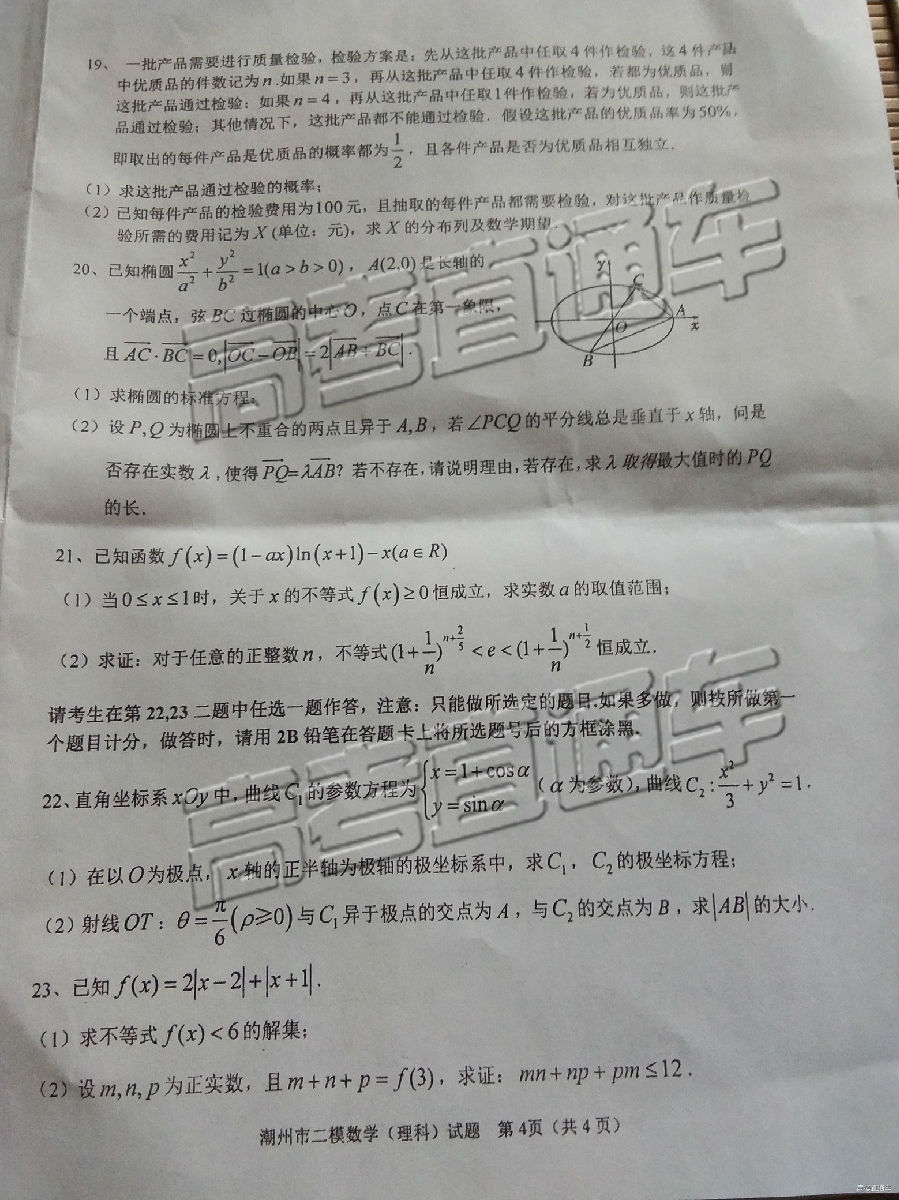 19、 一批产品需要进行质量检验，检验方案是：先从这批产品中任取4件作检验，这4件产品
中优质品的件数记为n.如果n=3，再从这批产品中任取4件作检验，若都为优质品，则
这批产品通过检验；如果n=4，再从这批产品中任取1件作检验，若为优质品，则这批产
品通过检验；其他情况下，这批产品都不能通过检验．假设这批产品的优质品率为50%，
即取出的每件产品是优质品的概率都为1/2，且各件产品是否为优质品相互独立．
（1）求这批产品通过检验的概率；
（2）已知每件产品的检验费用为100元，且抽取的每件产品都需要检验，对这批产品作质量检
验所需的费用记为X(单位：元)，求X的分布列及数学期望．
20、已知椭圆x²/a²+y²/b²=1(a>b>0)，A(2,0)是长轴的
一个端点，弦BC过椭圆的中心O，点C在第一象限，
且AC·BC=0,|OC−OB|=2|AB+BC|．
y
C
A
O
x
B
（1）求椭圆的标准方程；
（2）设P,Q为椭圆上不重合的两点且异于A,B，若∠PCQ的平分线总是垂直于x轴，问是
否存在实数λ,使得PQ=λAB？若不存在,请说明理由,若存在,求λ取得最大值时的PQ
的长．
21、已知函数f(x)=(1−ax)ln(x+1)−x(a∈R)
（1）当0≤x≤1时，关于x的不等式f(x)≥0恒成立，求实数a的取值范围；
（2）求证：对于任意的正整数n，不等式(1+1/n)^(n+2/5)<e<(1+1/n)^(n+1/2)恒成立．
请考生在第22,23二题中任选一题作答，注意：只能做所选定的题目.如果多做，则按所做第一
个题目计分，做答时，请用2B铅笔在答题卡上将所选题号后的方框涂黑．
22、直角坐标系xOy中,曲线C₁的参数方程为{x=1+cosα y=sinα（α为参数）,曲线C₂:x²/3+y²=1．
（1）在以O为极点，x轴的正半轴为极轴的极坐标系中，求C₁，C₂的极坐标方程；
（2）射线OT：θ=π/6(ρ≥0)与C₁异于极点的交点为A，与C₂的交点为B，求|AB|的大小．
23、已知f(x)=2|x−2|+|x+1|．
（1）求不等式f(x)<6的解集；
（2）设m,n,p为正实数，且m+n+p=f(3)，求证：mn+np+pm≤12．
潮州市二模数学（理科）试题 第4页（共4页）
高考直通车
高考直通车